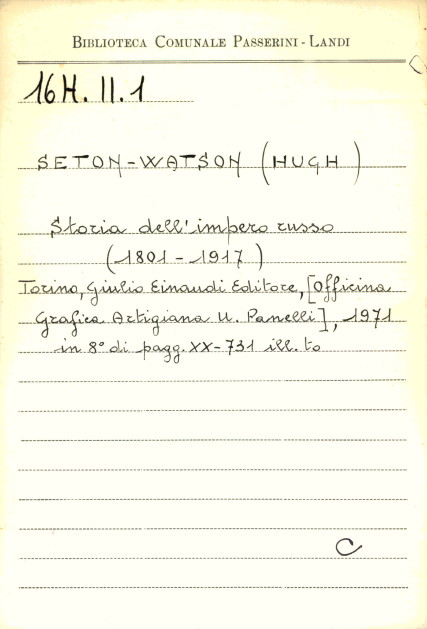 BIBLIOTECA COMUNALE PASSERINI - LANDI
16H. II. 1
SETON-WATSON (HUGH)
Storia dell'impero russo
(1801-1917)
Torino, Giulio Einaudi Editore, [Officina
Grafica Artigiana U. Panelli], 1971
in 8° di pagg. XX-731 ill. to
C